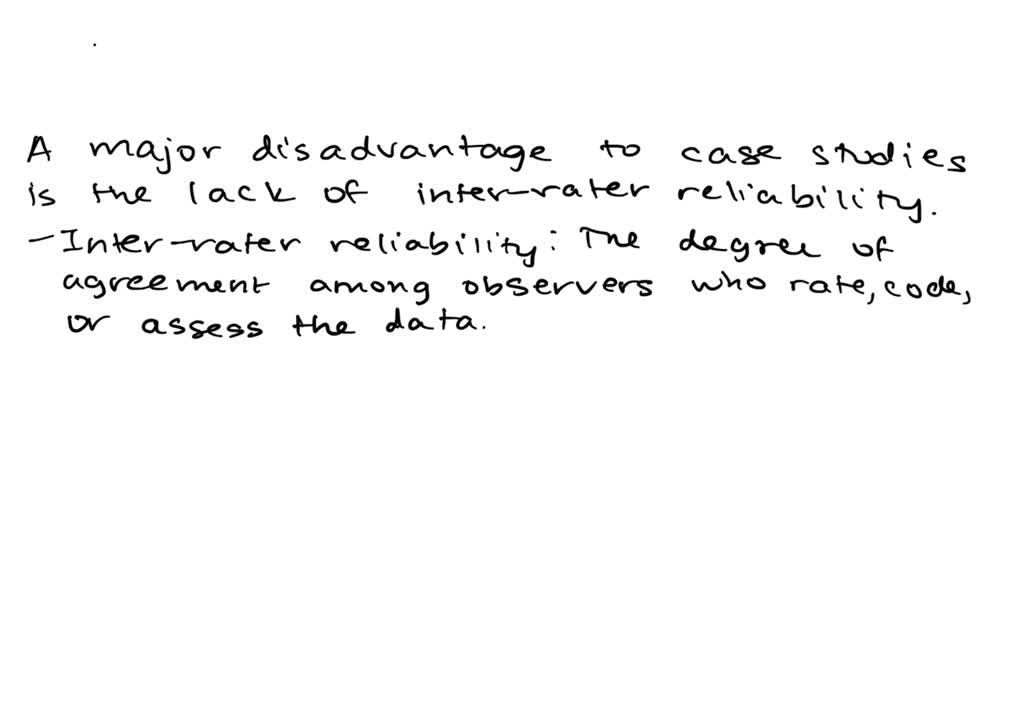 A major disadvantage to case studies
is the lack of inter-rater reliability.
- Inter-rater reliability: The degree of
agreement among observers who rate, code,
or assess the data.